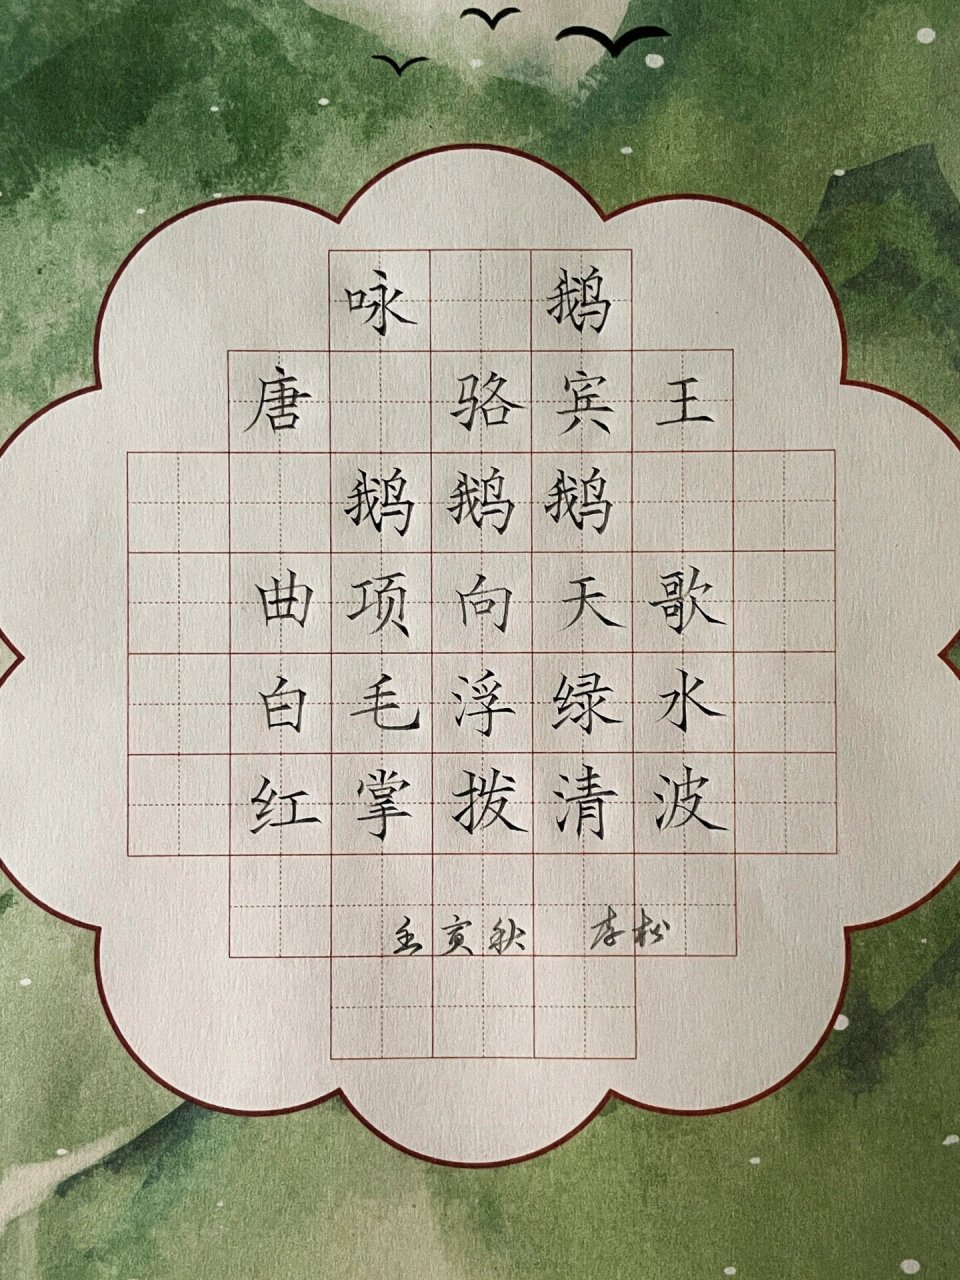 咏鹅
唐 骆宾王
鹅鹅鹅
曲项向天歌
白毛浮绿水
红掌拨清波
壬寅秋 李松